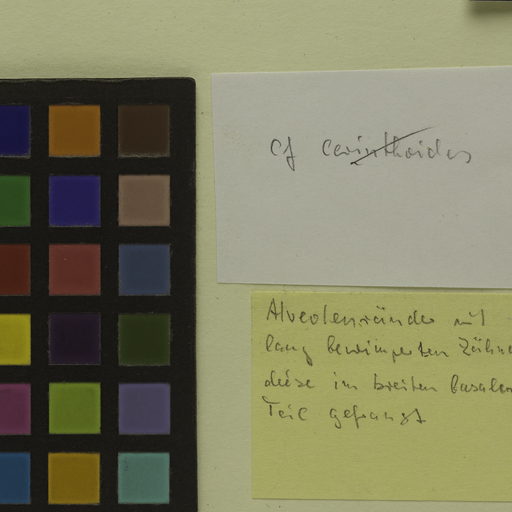 cf cerinthoides
Alveolenränder mit
lang bewimperten Zähne
diese im breiten basalen
Teil gefranst